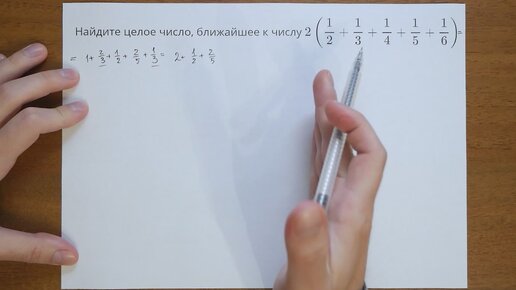 Найдите целое число, ближайшее к числу 2 (1/2 + 1/3 + 1/4 + 1/5 + 1/6) =
= 1 + 2/3 + 1/2 + 2/5 + 1/3 = 2 + 1/2 + 2/5